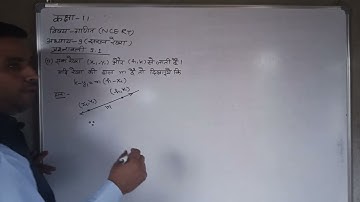 कक्षा-11
विषय-गणित (NCERT)
अध्याय-9 (सरल रेखा)
प्रश्नावली 9.1
एक रेखा (x₁, y₁) और (h, k) से जाती है।
यदि रेखा की ढाल m है तो दिखाइए कि
k-y₁ = m (h-x₁)
हल:-
(x₁, y₁) (h, k)
m
∵